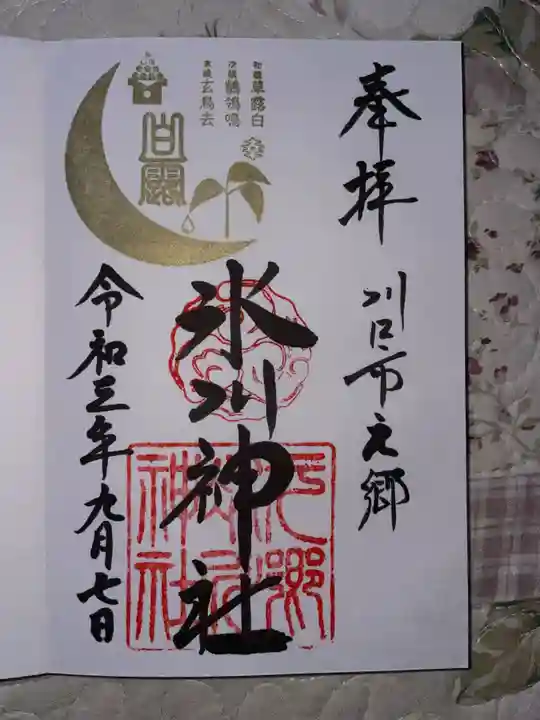 奉拝
川口市元郷
初候草露白
次候鶺鴒鳴
末候玄鳥去
白露
氷川神社
元郷
氷川
神社
令和三年九月七日